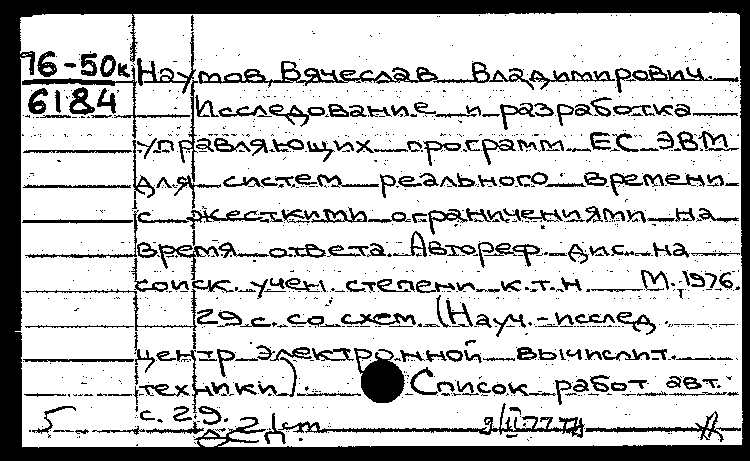 76-50к Наумов, Вячеслав Владимирович.
6184 Исследование и разработка
управляющих программ ЕС ЭВМ
для систем реального времени
с жесткими ограничениями на
время ответа. Автореф. дис. на
соиск. учен. степени к.т.н. М., 1976.
29 с. со схем. (Науч.-исслед.
центр электронной вычислит.
техники). Список работ авт.:
с. 29.
5 ДСП. 21 cm